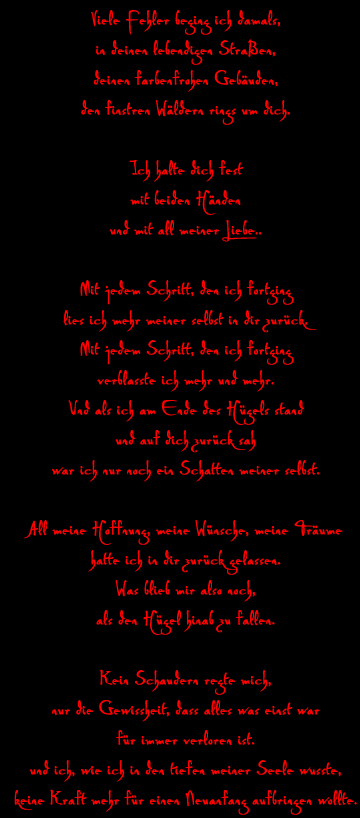 Viele Fehler beging ich damals,
in deinen lebendigen Straßen,
deinen farbenfrohen Gebäuden,
den finstren Wäldern rings um dich.
Ich halte dich fest
mit beiden Händen
und mit all meiner Liebe..
Mit jedem Schritt, den ich fortging
lies ich mehr meiner selbst in dir zurück.
Mit jedem Schritt, den ich fortging
verblasste ich mehr und mehr.
Und als ich am Ende des Hügels stand
und auf dich zurück sah
war ich nur noch ein Schatten meiner selbst.
All meine Hoffnung, meine Wünsche, meine Träume
hatte ich in dir zurück gelassen.
Was blieb mir also noch,
als den Hügel hinab zu fallen.
Kein Schaudern regte mich,
nur die Gewissheit, dass alles was einst war
für immer verloren ist.
und ich, wie ich in den tiefen meiner Seele wusste,
keine Kraft mehr für einen Neuanfang aufbringen wollte.